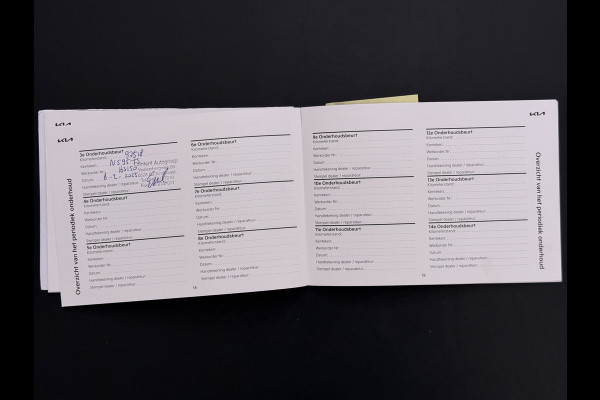 KIA
KIA
Overzicht van het periodiek onderhoud
3e Onderhoudsbeurt
Kilometerstand
Kenteken
Werkorder Nr.
Datum
Handtekening dealer / reparateur
Stempel dealer / reparateur
4e Onderhoudsbeurt
Kilometerstand
Kenteken
Werkorder Nr.
Datum
Handtekening dealer / reparateur
Stempel dealer / reparateur
5e Onderhoudsbeurt
Kilometerstand
Kenteken
Werkorder Nr.
Datum
Handtekening dealer / reparateur
Stempel dealer / reparateur
6e Onderhoudsbeurt
Kilometerstand
Kenteken
Werkorder Nr.
Datum
Handtekening dealer / reparateur
Stempel dealer / reparateur
7e Onderhoudsbeurt
Kilometerstand
Kenteken
Werkorder Nr.
Datum
Handtekening dealer / reparateur
Stempel dealer / reparateur
8e Onderhoudsbeurt
Kilometerstand
Kenteken
Werkorder Nr.
Datum
Handtekening dealer / reparateur
Stempel dealer / reparateur
KIA
9e Onderhoudsbeurt
Kilometerstand
Kenteken
Werkorder Nr.
Datum
Handtekening dealer / reparateur
Stempel dealer / reparateur
10e Onderhoudsbeurt
Kilometerstand
Kenteken
Werkorder Nr.
Datum
Handtekening dealer / reparateur
Stempel dealer / reparateur
11e Onderhoudsbeurt
Kilometerstand
Kenteken
Werkorder Nr.
Datum
Handtekening dealer / reparateur
Stempel dealer / reparateur
12e Onderhoudsbeurt
Kilometerstand
Kenteken
Werkorder Nr.
Datum
Handtekening dealer / reparateur
Stempel dealer / reparateur
13e Onderhoudsbeurt
Kilometerstand
Kenteken
Werkorder Nr.
Datum
Handtekening dealer / reparateur
Stempel dealer / reparateur
14e Onderhoudsbeurt
Kilometerstand
Kenteken
Werkorder Nr.
Datum
Handtekening dealer / reparateur
Stempel dealer / reparateur
Overzicht van het periodiek onderhoud